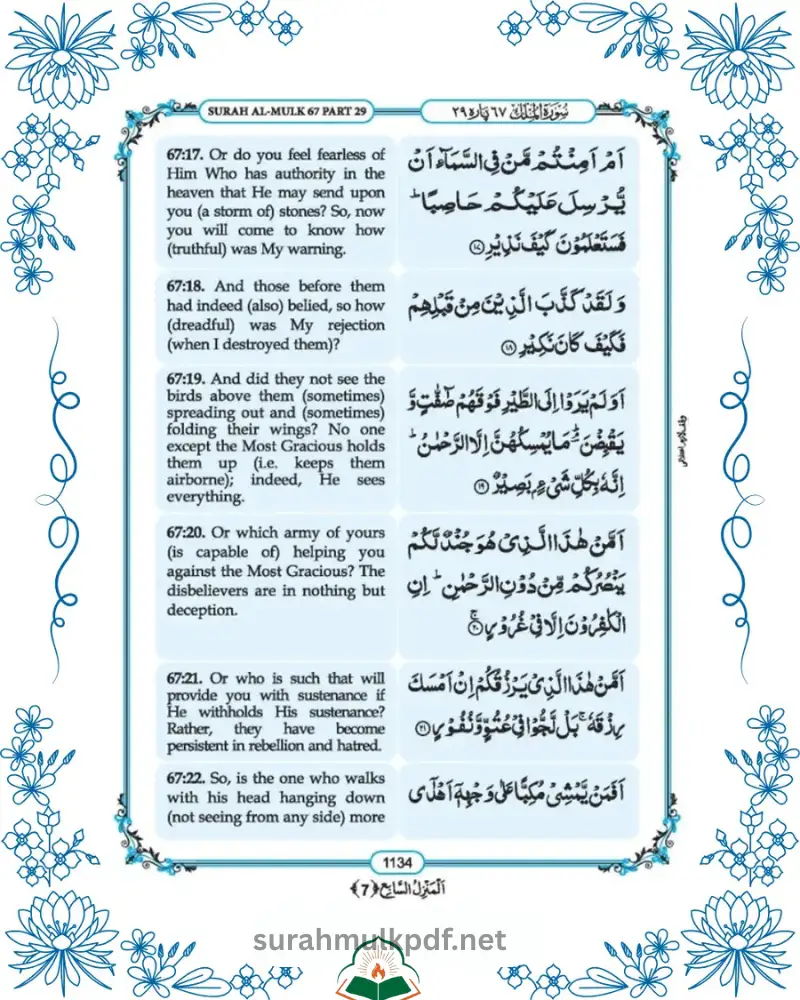 SURAH AL-MULK 67 PART 29
سُورَةُ الْمُلْكِ ٦٧ پارہ ٢٩
67:17. Or do you feel fearless of
Him Who has authority in the
heaven that He may send upon
you (a storm of) stones? So, now
you will come to know how
(truthful) was My warning.
اَمْ اَمِنْتُمْ مَّنْ فِی السَّمَآءِ اَنْ
یُّرْسِلَ عَلَیْكُمْ حَاصِبًا ؕ
فَسَتَعْلَمُوْنَ كَیْفَ نَذِیْرِ ﴿۱۷﴾
67:18. And those before them
had indeed (also) belied, so how
(dreadful) was My rejection
(when I destroyed them)?
وَ لَقَدْ كَذَّبَ الَّذِیْنَ مِنْ قَبْلِهِمْ
فَكَیْفَ كَانَ نَكِیْرِ ﴿۱۸﴾
67:19. And did they not see the
birds above them (sometimes)
spreading out and (sometimes)
folding their wings? No one
except the Most Gracious holds
them up (i.e. keeps them
airborne); indeed, He sees
everything.
اَوَ لَمْ یَرَوْا اِلَی الطَّیْرِ فَوْقَهُمْ صٰٓفّٰتٍ وَّ
یَقْبِضْنَ ؔۘ مَا یُمْسِكُهُنَّ اِلَّا الرَّحْمٰنُ ؕ
اِنَّهٗ بِكُلِّ شَیْءٍۭ بَصِیْرٌ ﴿۱۹﴾
67:20. Or which army of yours
(is capable of) helping you
against the Most Gracious? The
disbelievers are in nothing but
deception.
اَمَّنْ هٰذَا الَّذِیْ هُوَ جُنْدٌ لَّكُمْ
یَنْصُرُكُمْ مِّنْ دُوْنِ الرَّحْمٰنِ ؕ اِنِ
الْكٰفِرُوْنَ اِلَّا فِیْ غُرُوْرٍ ﴿ۚ۲۰﴾
67:21. Or who is such that will
provide you with sustenance if
He withholds His sustenance?
Rather, they have become
persistent in rebellion and hatred.
اَمَّنْ هٰذَا الَّذِیْ یَرْزُقُكُمْ اِنْ اَمْسَكَ
رِزْقَهٗ ۚ بَلْ لَّجُّوْا فِیْ عُتُوٍّ وَّ نُفُوْرٍ ﴿۲۱﴾
67:22. So, is the one who walks
with his head hanging down
(not seeing from any side) more
اَفَمَنْ یَّمْشِیْ مُكِبًّا عَلٰی وَجْهِهٖۤ اَهْدٰۤی
1134
اَلْمَنْزِلُ السَّابِعُ ﴿7﴾
surahmulkpdf.net